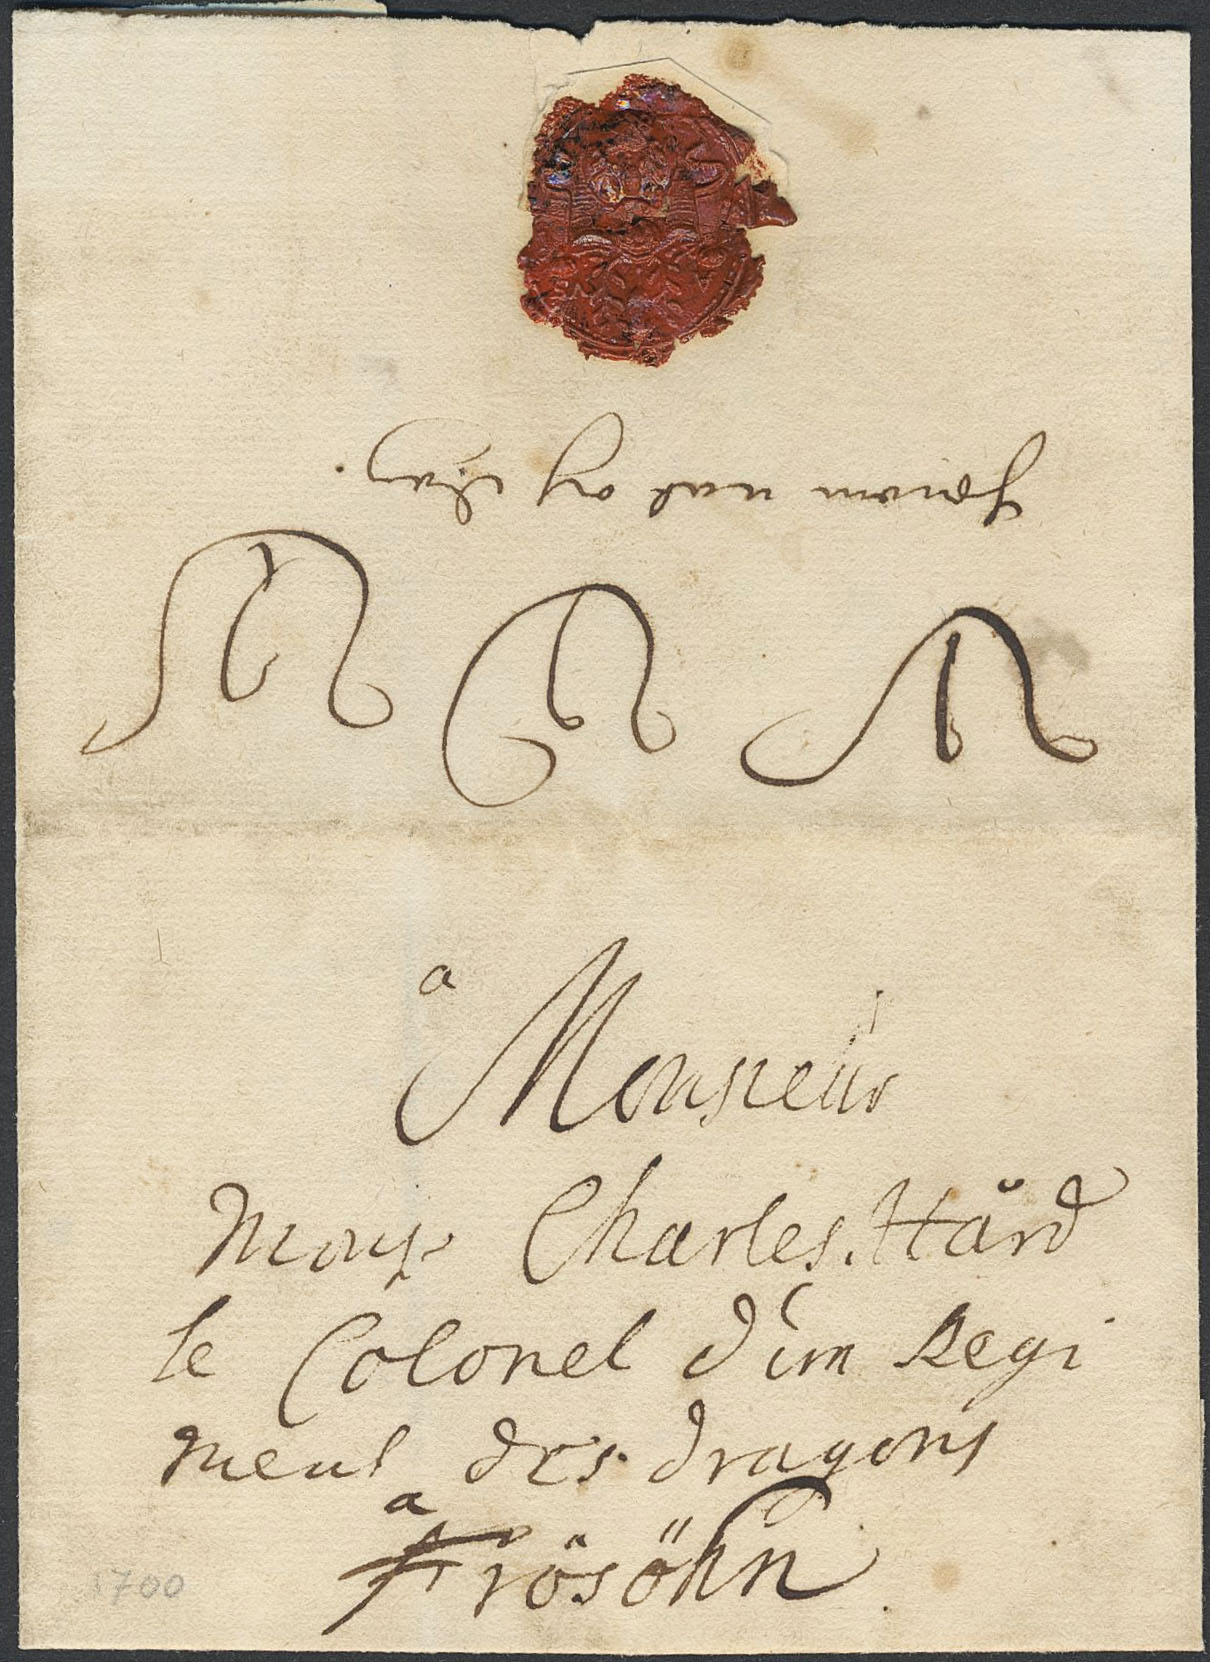 a
Monsieur
Mons: Charles. Hård
le Colonel d'un Regi
ment des dragons
a
Frösöhn
1700